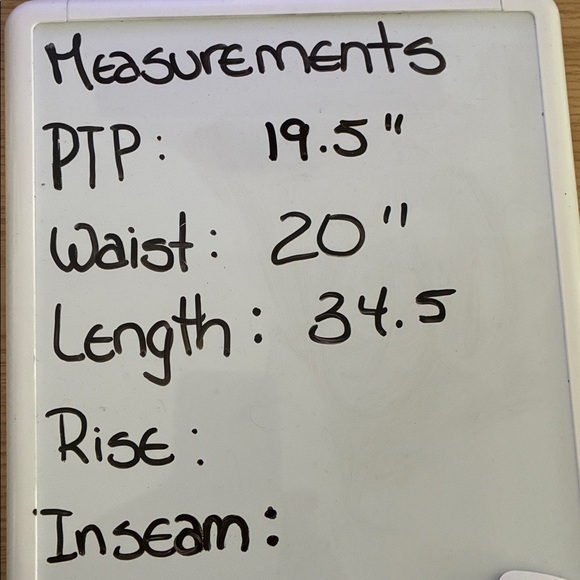 Measurements
PTP: 19.5"
Waist: 20"
Length: 34.5
Rise:
Inseam: